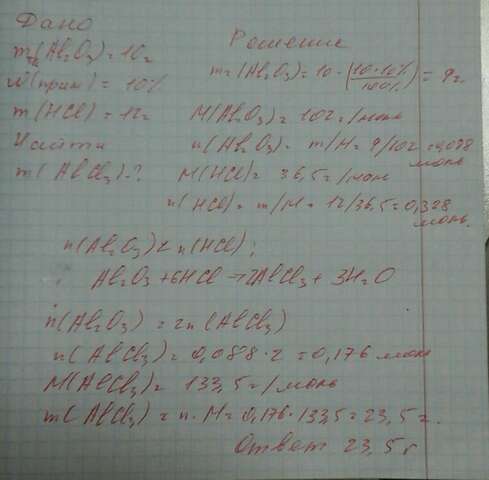 Дано
m(Al₂O₃) = 10г
W(прим) = 10%
m(HCl) = 12г
Найти
m(AlCl₃)-?
Решение
m₂(Al₂O₃) = 10·(10·10%/100%) = 9г.
M(Al₂O₃) = 102г/моль
n(Al₂O₃) = m/M = 9/102 = 0,088 моль
M(HCl) = 36,5г/моль
n(HCl) = m/M = 12/36,5 = 0,328 моль.
n(Al₂O₃) < n(HCl);
Al₂O₃ + 6HCl → 2AlCl₃ + 3H₂O
n(Al₂O₃) = 2n(AlCl₃)
n(AlCl₃) = 0,088·2 = 0,176 моль
M(AlCl₃) = 133,5г/моль
m(AlCl₃) = n·M = 0,176·133,5 = 23,5г.
Ответ 23,5г